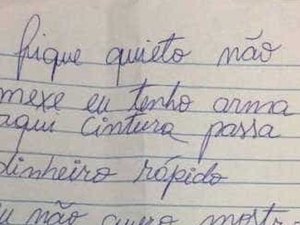 fique quieto não
mexe eu tenho arma
aqui cintura passa
dinheiro rápido
não quero